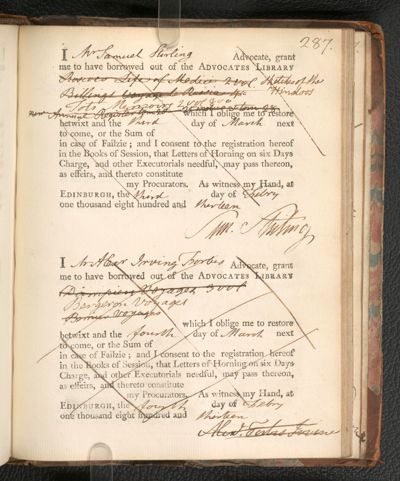 287.
I Mr Samuel Stirling Advocate, grant
me to have borrowed out of the ADVOCATES LIBRARY
Life of Medici 2 vol Sketches of the
Billings Voyage to Russia 4to Hindoos
New Annual Register which I oblige me to restore
betwixt and the third day of March next
to come, or the Sum of
in case of Failzie; and I consent to the registration hereof
in the Books of Session, that Letters of Horning on six Days
Charge, and other Executorials needful, may pass thereon,
as effeirs, and thereto constitute
my Procurators. As witness my Hand, at
EDINBURGH, the third day of Febry
one thousand eight hundred and thirteen
Sam. Stirling
I Mr Alexr Irving Forbes Advocate, grant
me to have borrowed out of the ADVOCATES LIBRARY
Dampiers Voyages 3 vol
Bergeron Voyages
Voyages
which I oblige me to restore
betwixt and the fourth day of March next
to come, or the Sum of
in case of Failzie; and I consent to the registration hereof
in the Books of Session, that Letters of Horning on six Days
Charge, and other Executorials needful, may pass thereon,
as effeirs, and thereto constitute
my Procurators. As witness my Hand, at
EDINBURGH, the fourth day of Febry
one thousand eight hundred and thirteen
Alexr. Forbes Irvine